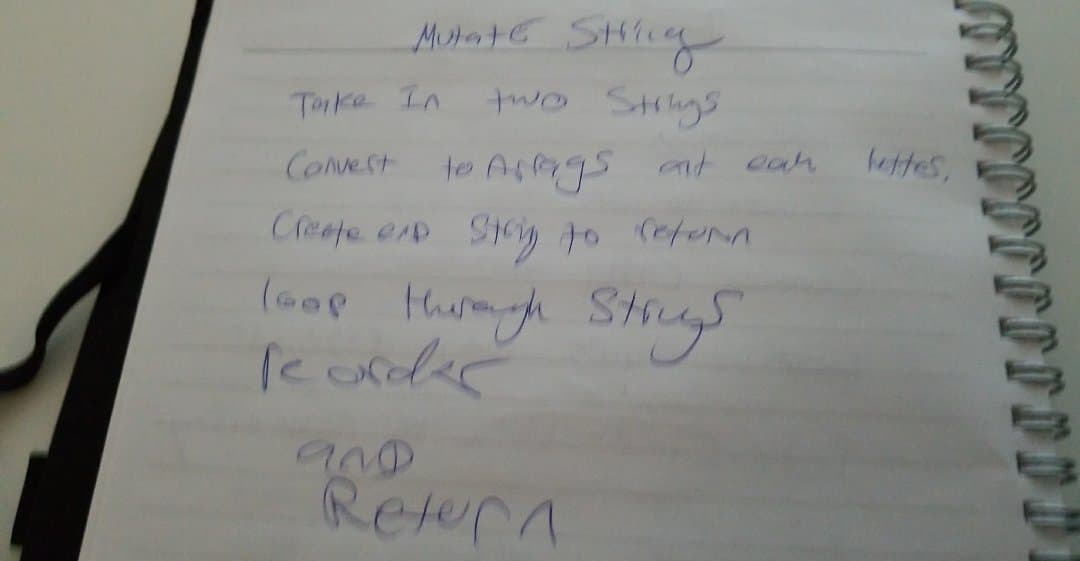 Mutate String
Take In two Strings
Convert to Arrays at each letter,
Create end String to return
loop through Strings
reorder
and
Return